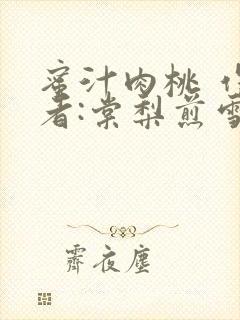 蜜汁肉桃 作
者:棠梨煎雪
霽夜塵